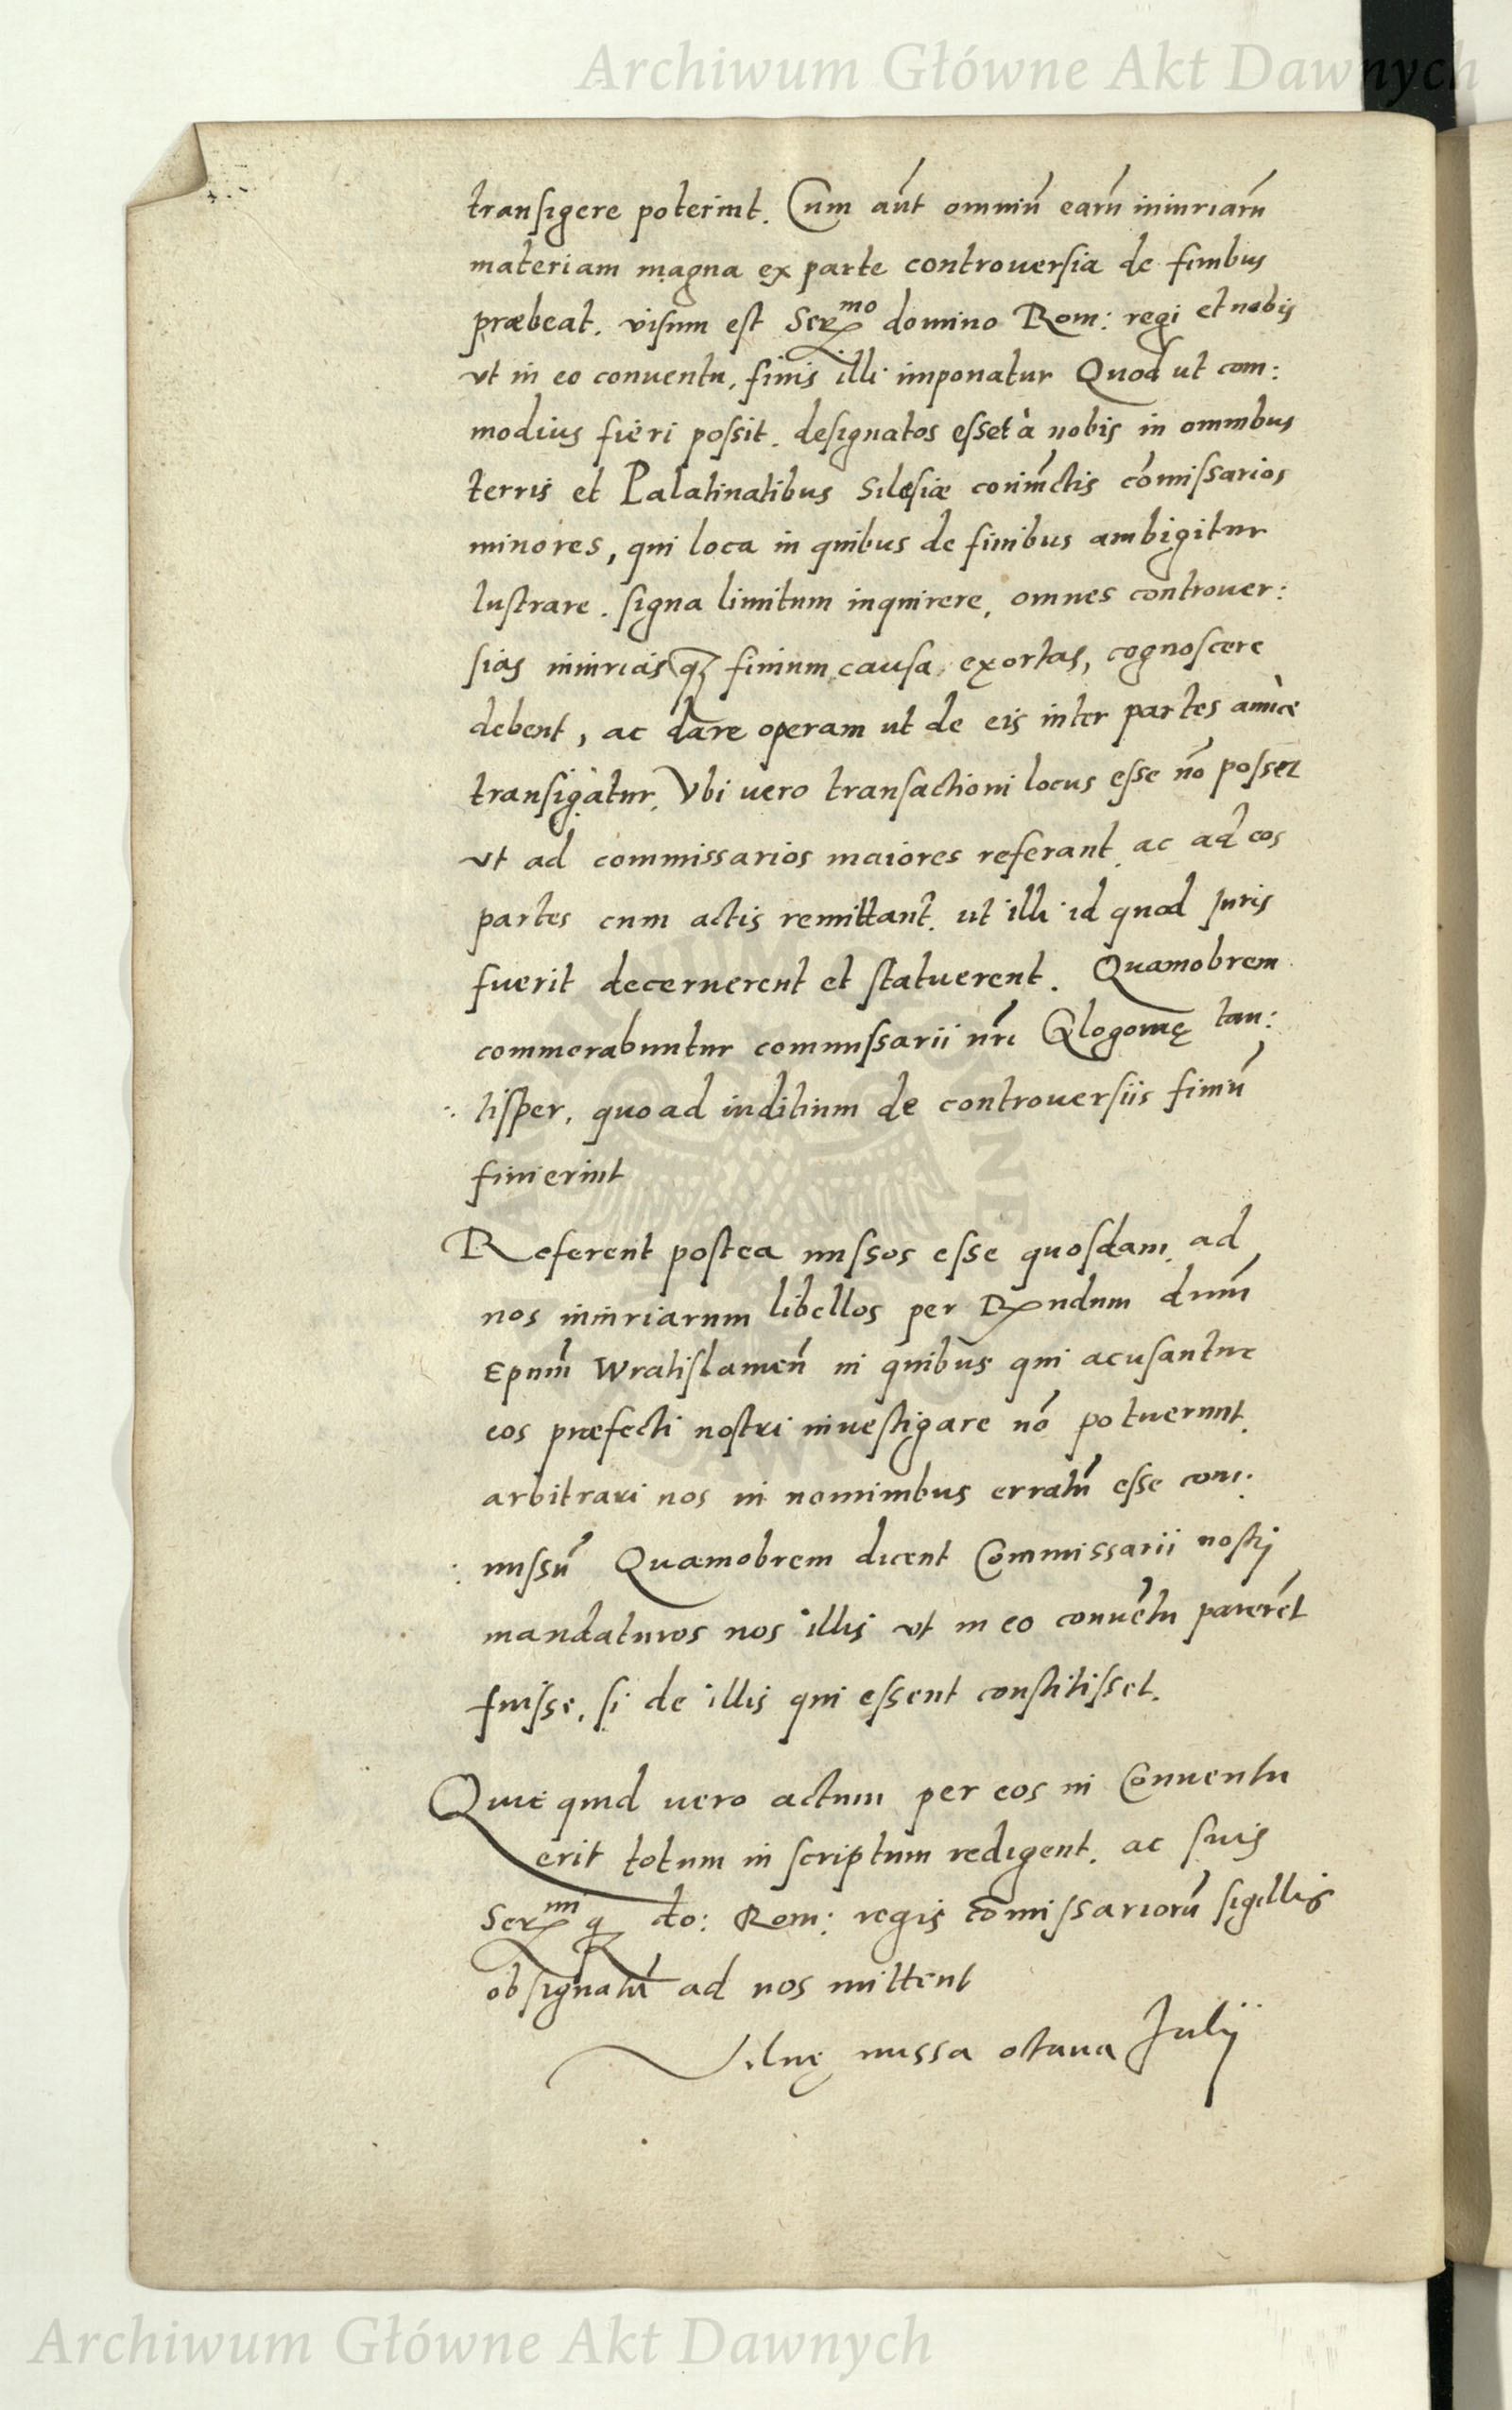 Archiwum Główne Akt Dawnych
transigere poterint. Cum aūt omniū earū iniuriarū
materiam magna ex parte controuersia de finibus
præbeat. visum est Ser^mo domino Rom: regi et nobis
vt in eo conuentu, finis illi imponatur Quod ut com:
modius fieri possit. designatos esset à nobis in omnibus
terris et Palatinatibus Silesiæ coniūctis cōmissarios
minores, qui loca in quibus de finibus ambigitur
lustrare. signa limitum inquirere, omnes controuer:
sias iniurias q3 finium causa exortas, cognoscere
debent, ac dare operam ut de eis inter partes amice
transigatur. Vbi uero transactioni locus esse nō posset
vt ad commissarios maiores referant ac ad eos
partes cum actis remittant. ut illi id quod Juris
fuerit decernerent et statuerent. Quamobrem
commorabuntur commissarii nrī Glogouię tan:
:tisper, quoad iuditium de controuersiis finiū
finierint
Referent postea missos esse quosdam ad
nos iniuriarum libellos per Rndum dnūm
Epnūm Wratislauieñ in quibus qui acusantur
eos præfecti nostri inuestigare nō potuerunt.
arbitrari nos in nominibus erratū esse com:
:missū Quamobrem dicent Commissarii nostri
mandaturos nos illis vt in eo conuētu parerēt
fuisse, si de illis qui essent constitisset.
Quic quid uero actum per eos in Conuentu
erit totum in scriptum redigent. ac suis
Ser^mi q3 do: Rom: regis cōmissariorū sigillis
obsignatū ad nos mittent
Vilnę missa octaua Julij
Archiwum Główne Akt Dawnych